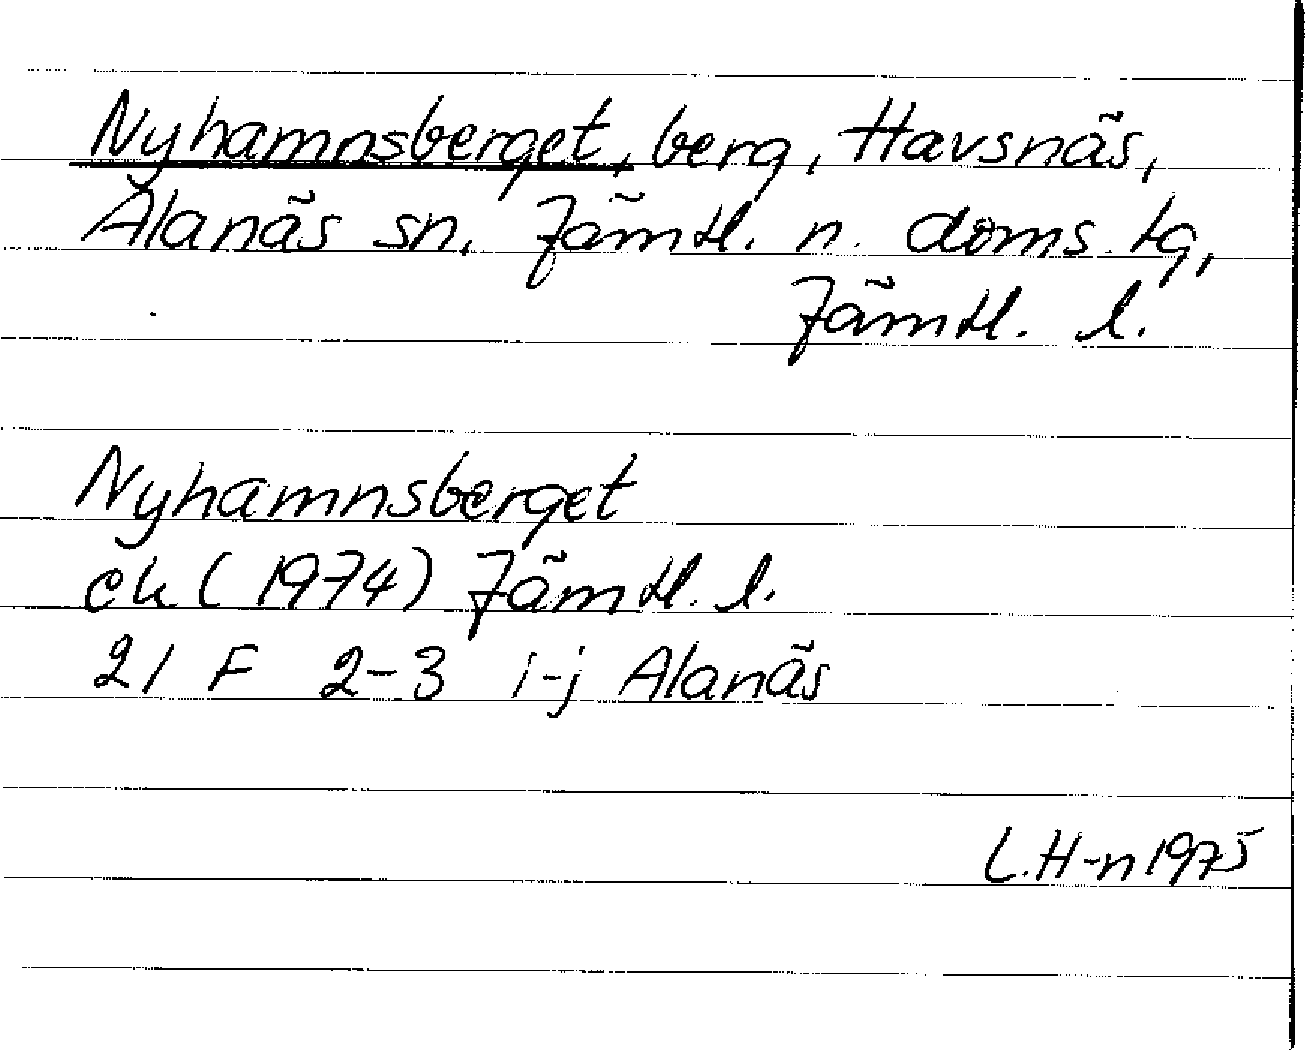 Nyhamnsberget, berg, Havsnäs,
Alanäs sn, Jämtl. n. doms. tg,
Jämtl. l.
Nyhamnsberget
ek (1974) Jämtl. l.
21 F 2-3 i-j Alanäs
L.H-n 1975